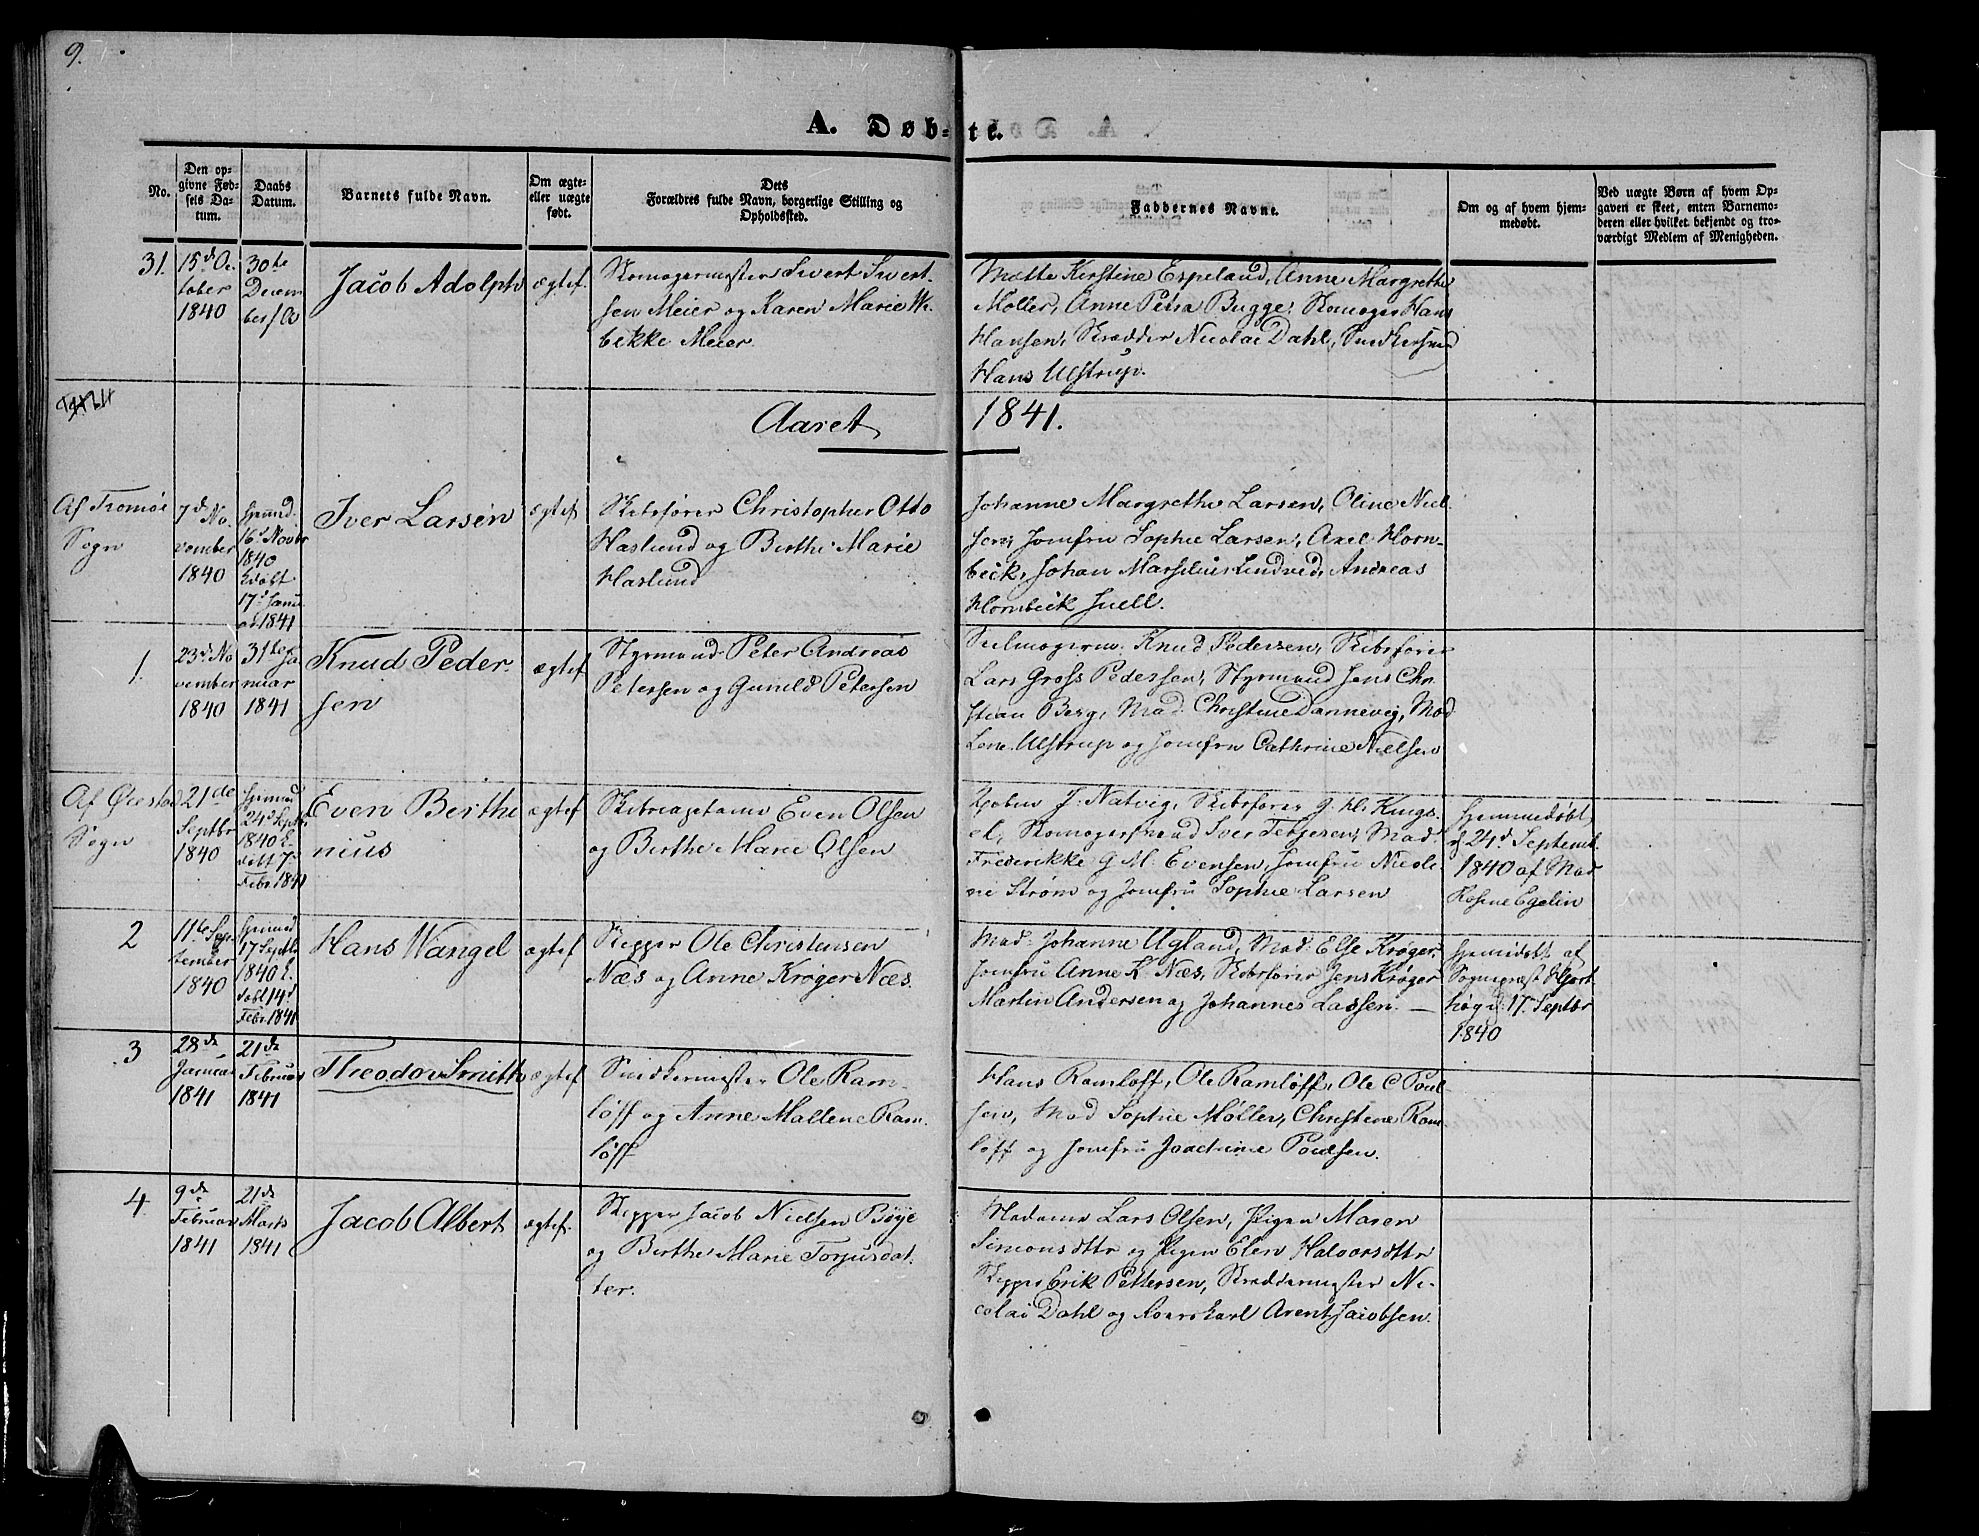 9.
A. Døb-te.
No.
Den op-
givne Fød-
sels Da-
tum.
Daabs
Datum.
Barnets fulde Navn.
Om ægte-
eller uægte
født.
Dets
Forældres fulde Navn, borgerlige Stilling og
Opholdssted.
Faddernes Navne.
Om og af hvem hjem-
medøbt.
Ved uægte Børn af hvem Op-
gaven er skeet, enten Barnemo-
deren eller hvilket bekjendt og tro-
værdigt Medlem af Menigheden.
31.
15d Oc
tober
1840
30te
Decem
ber
Jacob Adolph
ægtef.
Skomagermester Sivert Sivert
sen Meier og Karen Marie Wi
bekke Meier.
Mette Kirstine Espeland, Anne Margrethe
Møller, Anne Petra Bugge, Skomager Hans
Hansen, Skrædder Nicolai Dahl, Snedkersvend
Hans Ulstrup.
Aaret 1841.
Af Tromøe
Sogn
7d No
vember
1840
Hjemmd.
16d Novbr
1840
Edøbt
17d Janu
ar 1841
Iver Larsen
ægtef
Skibsfører Christopher Otto
Haslund og Birthe Marie
Haslund
Johanne Margrethe Larsen, Oline Niel
sen, Jomfru Sophie Larsen, Axel Horn-
beck, Johan Marselius Lindved, Andreas
Hornbeck Juell.
1.
23d No
vember
1840
31te Ja
nuar
1841
Knud Peder
sen
ægtef
Styrmand Peter Andreas
Petersen og Gunild Petersen
Seilmagerm. Knud Pedersen, Skibsfører
Lars Gross Pedersen, Styrmand Jens Chri
stian Berg, Mad. Christine Dannevig, Mad
Lene Ulstrup og Jomfru Cathrine Nielsen
Af Øiestad
Sogn
21de
Septbr
1840
Hjemmd
24d Septb.
1840 E-
døbt 7d
Febr. 1841
Even Berthi
nius
ægtef
Skibscapitain Even Olsen
og Birthe Marie Olsen
J. Natvig, Skibsfører G. H. Kings
el, Skomagersvend Iver Tetjesen, Mad.
Frederikke G M. Evensen, Jomfru Nicoli
ne Strøm og Jomfru Sophie Larsen
Hjemmedøbt
d 24d Septemb.
1840 af Mad
Rosine Egelin
2
11te Sep-
tember
1840
Hjemmd
17 Septbr
1840 E.
døbt 14d
Febr. 1841
Hans Wangel
ægtef
Skipper Ole Christensen
Næs og Anne Krøger Næs.
Mad. Johanne Ugland, Mad. Else Krøger,
Jomfru Anne K. Næs, Skibsfører Jens Krøger
Martin Andersen og Johannes Lassen. —
Hjemdøbt af
Sognepræst Hjort
høg d. 17 Septbr
1840
3
28de
Januar
1841
21de
Februar
1841
Theodor Smith
ægtef
Snedkermester Ole Ram-
löff og Anne Mallene Ram-
löff
Hans Ramlöff, Ole Ramlöff, Ole C Poul-
sen, Mad Sophie Møller, Christine Ram-
löff og Jomfru Joachime Poulsen.
4
9de
Februar
1841
21de
Marts
1841
Jacob Albert
ægtef.
Skipper Jacob Nielsen Bøye
og Birthe Marie Torjusdat.
ter.
Madame Lars Olsen, Pigen Maren
Simonsdttr og Pigen Elen Halvorsdttr
Skipper Erik Pettersen, Skreddermester Ni-
colai Dahl og Arent Jacobsen.